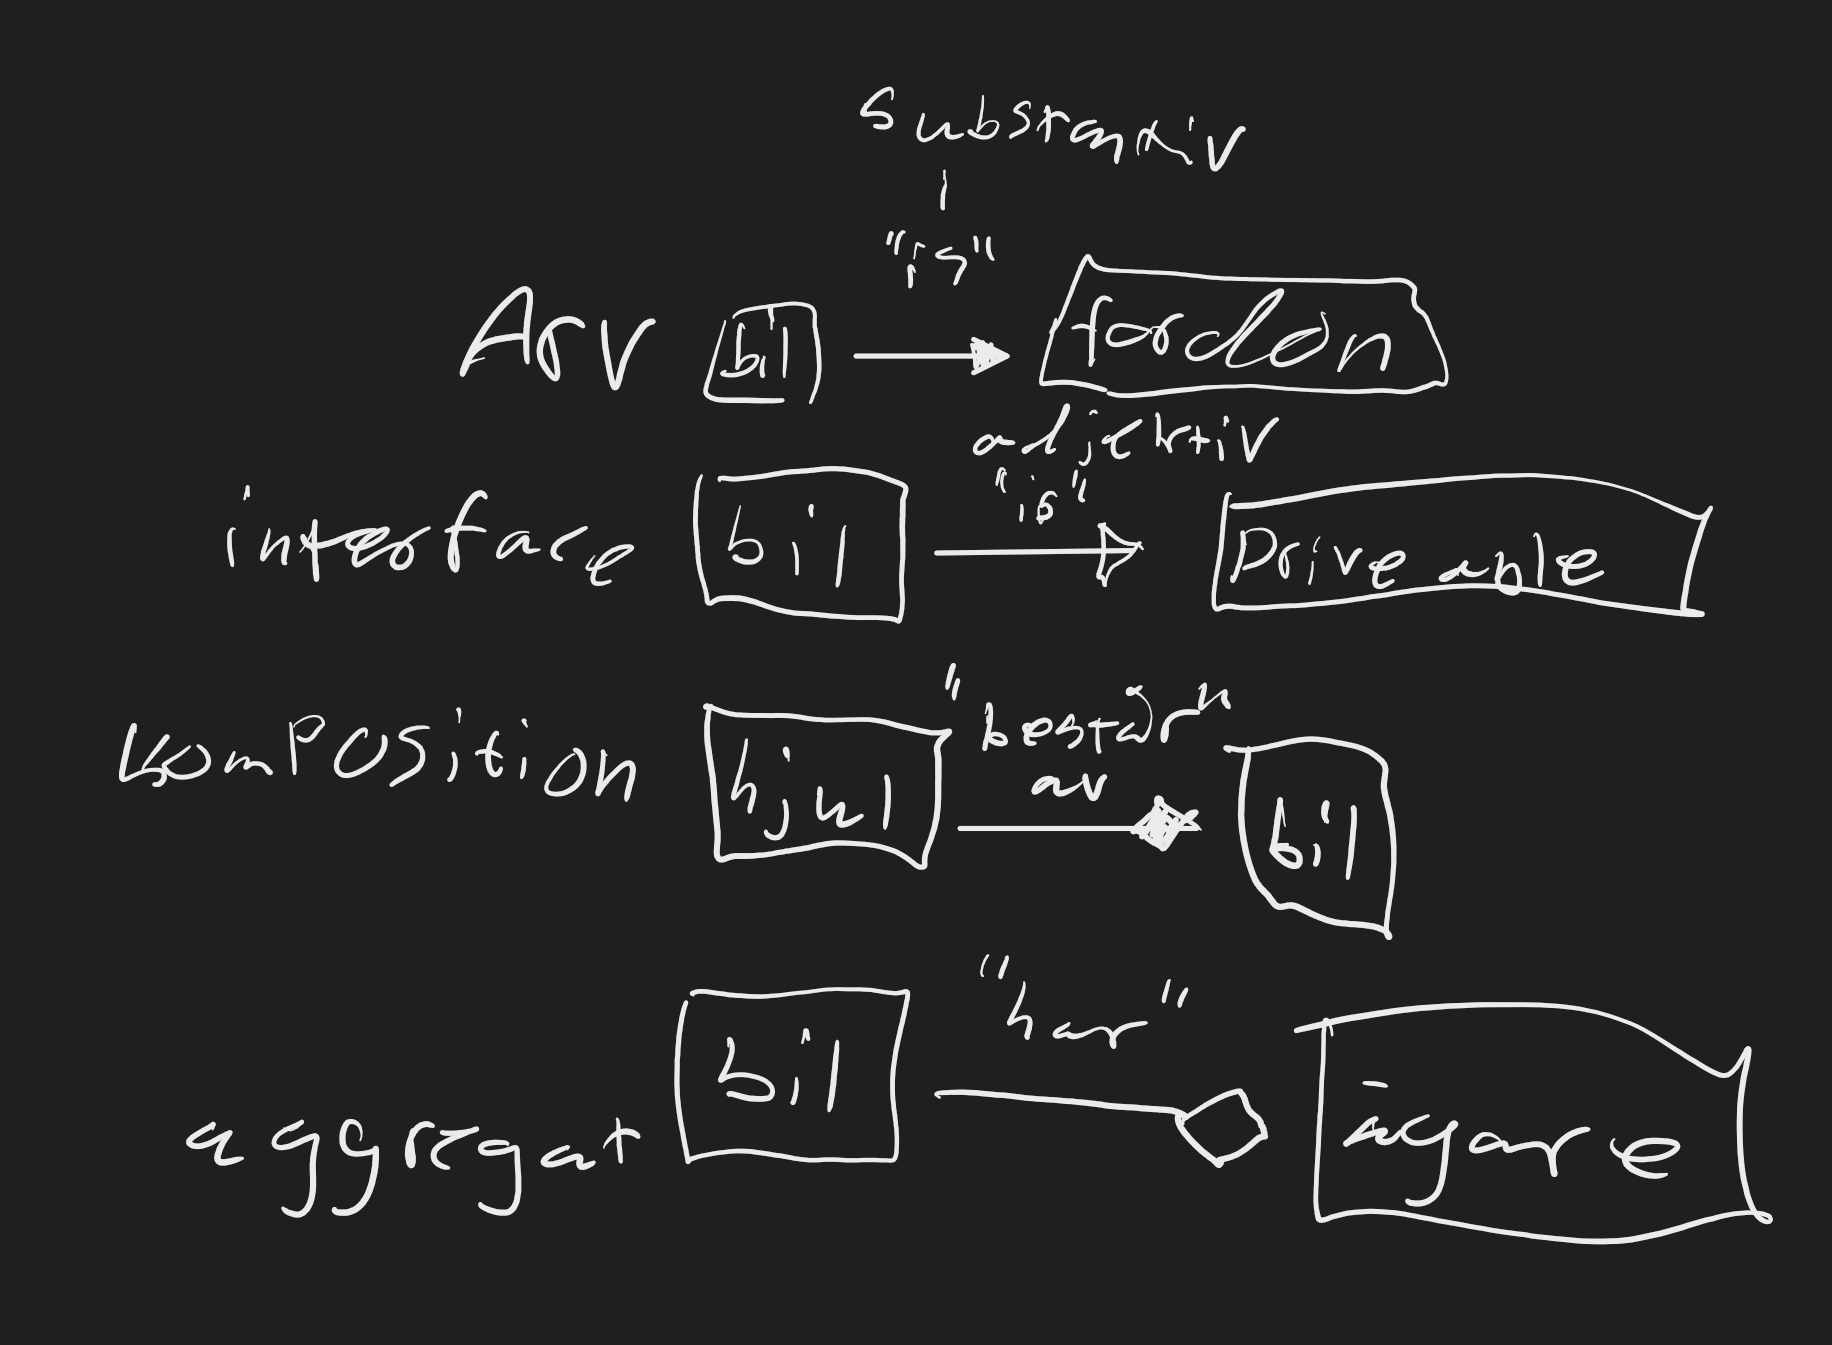 Substantiv
"is"
Arv bil fordon
adjektiv
"is"
interface bil Driveable
komposition hjul "består" av bil
"har"
aggregat bil ägare